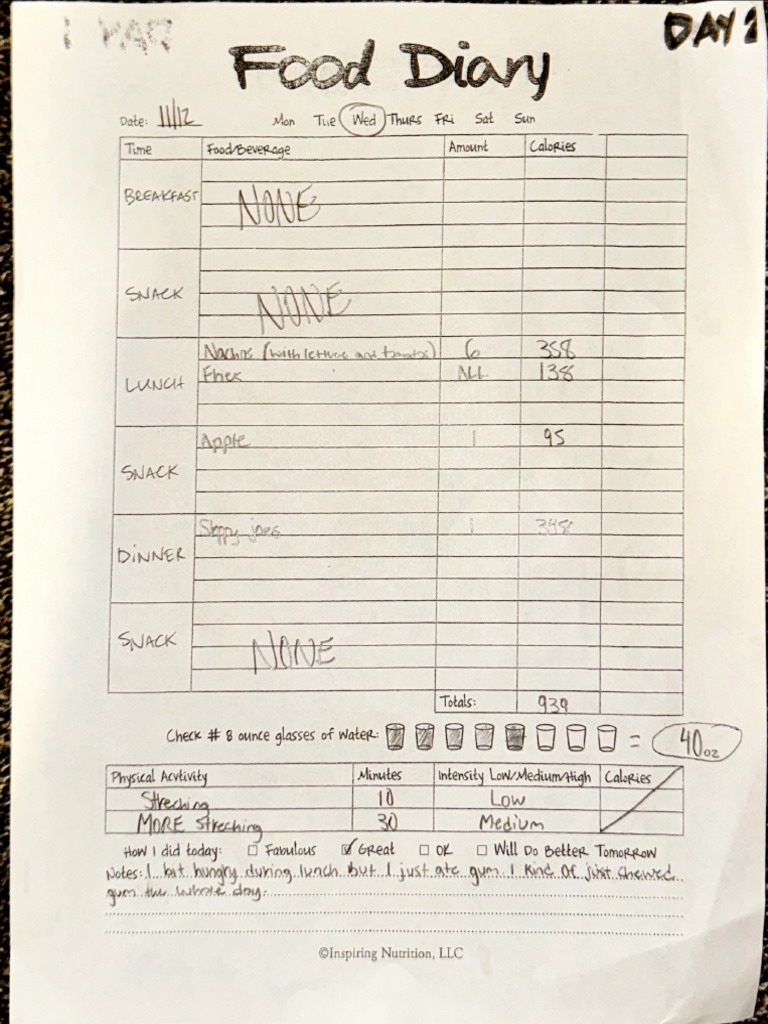 DAY 2
Food Diary
Date: 11/12 Mon Tue Wed Thurs Fri Sat Sun
Time Food/Beverage Amount Calories
BREAKFAST NONE
SNACK NONE
LUNCH Nachos (with lettuce and tomatos) 6 358
Fries ALL 138
SNACK Apple 1 95
DINNER Sloppy joes 1 348
SNACK NONE
Totals: 939
Check # 8 ounce glasses of water: = 40oz
Physical Acvtivity Minutes Intensity Low/Medium/High Calories
Streching 10 Low
MORE Streching 30 Medium
How I did today: Fabulous Great OK Will Do Better Tomorrow
Notes: I bit hungry during lunch but I just ate gum. I kind of just chewed
gum the whole day.
©Inspiring Nutrition, LLC